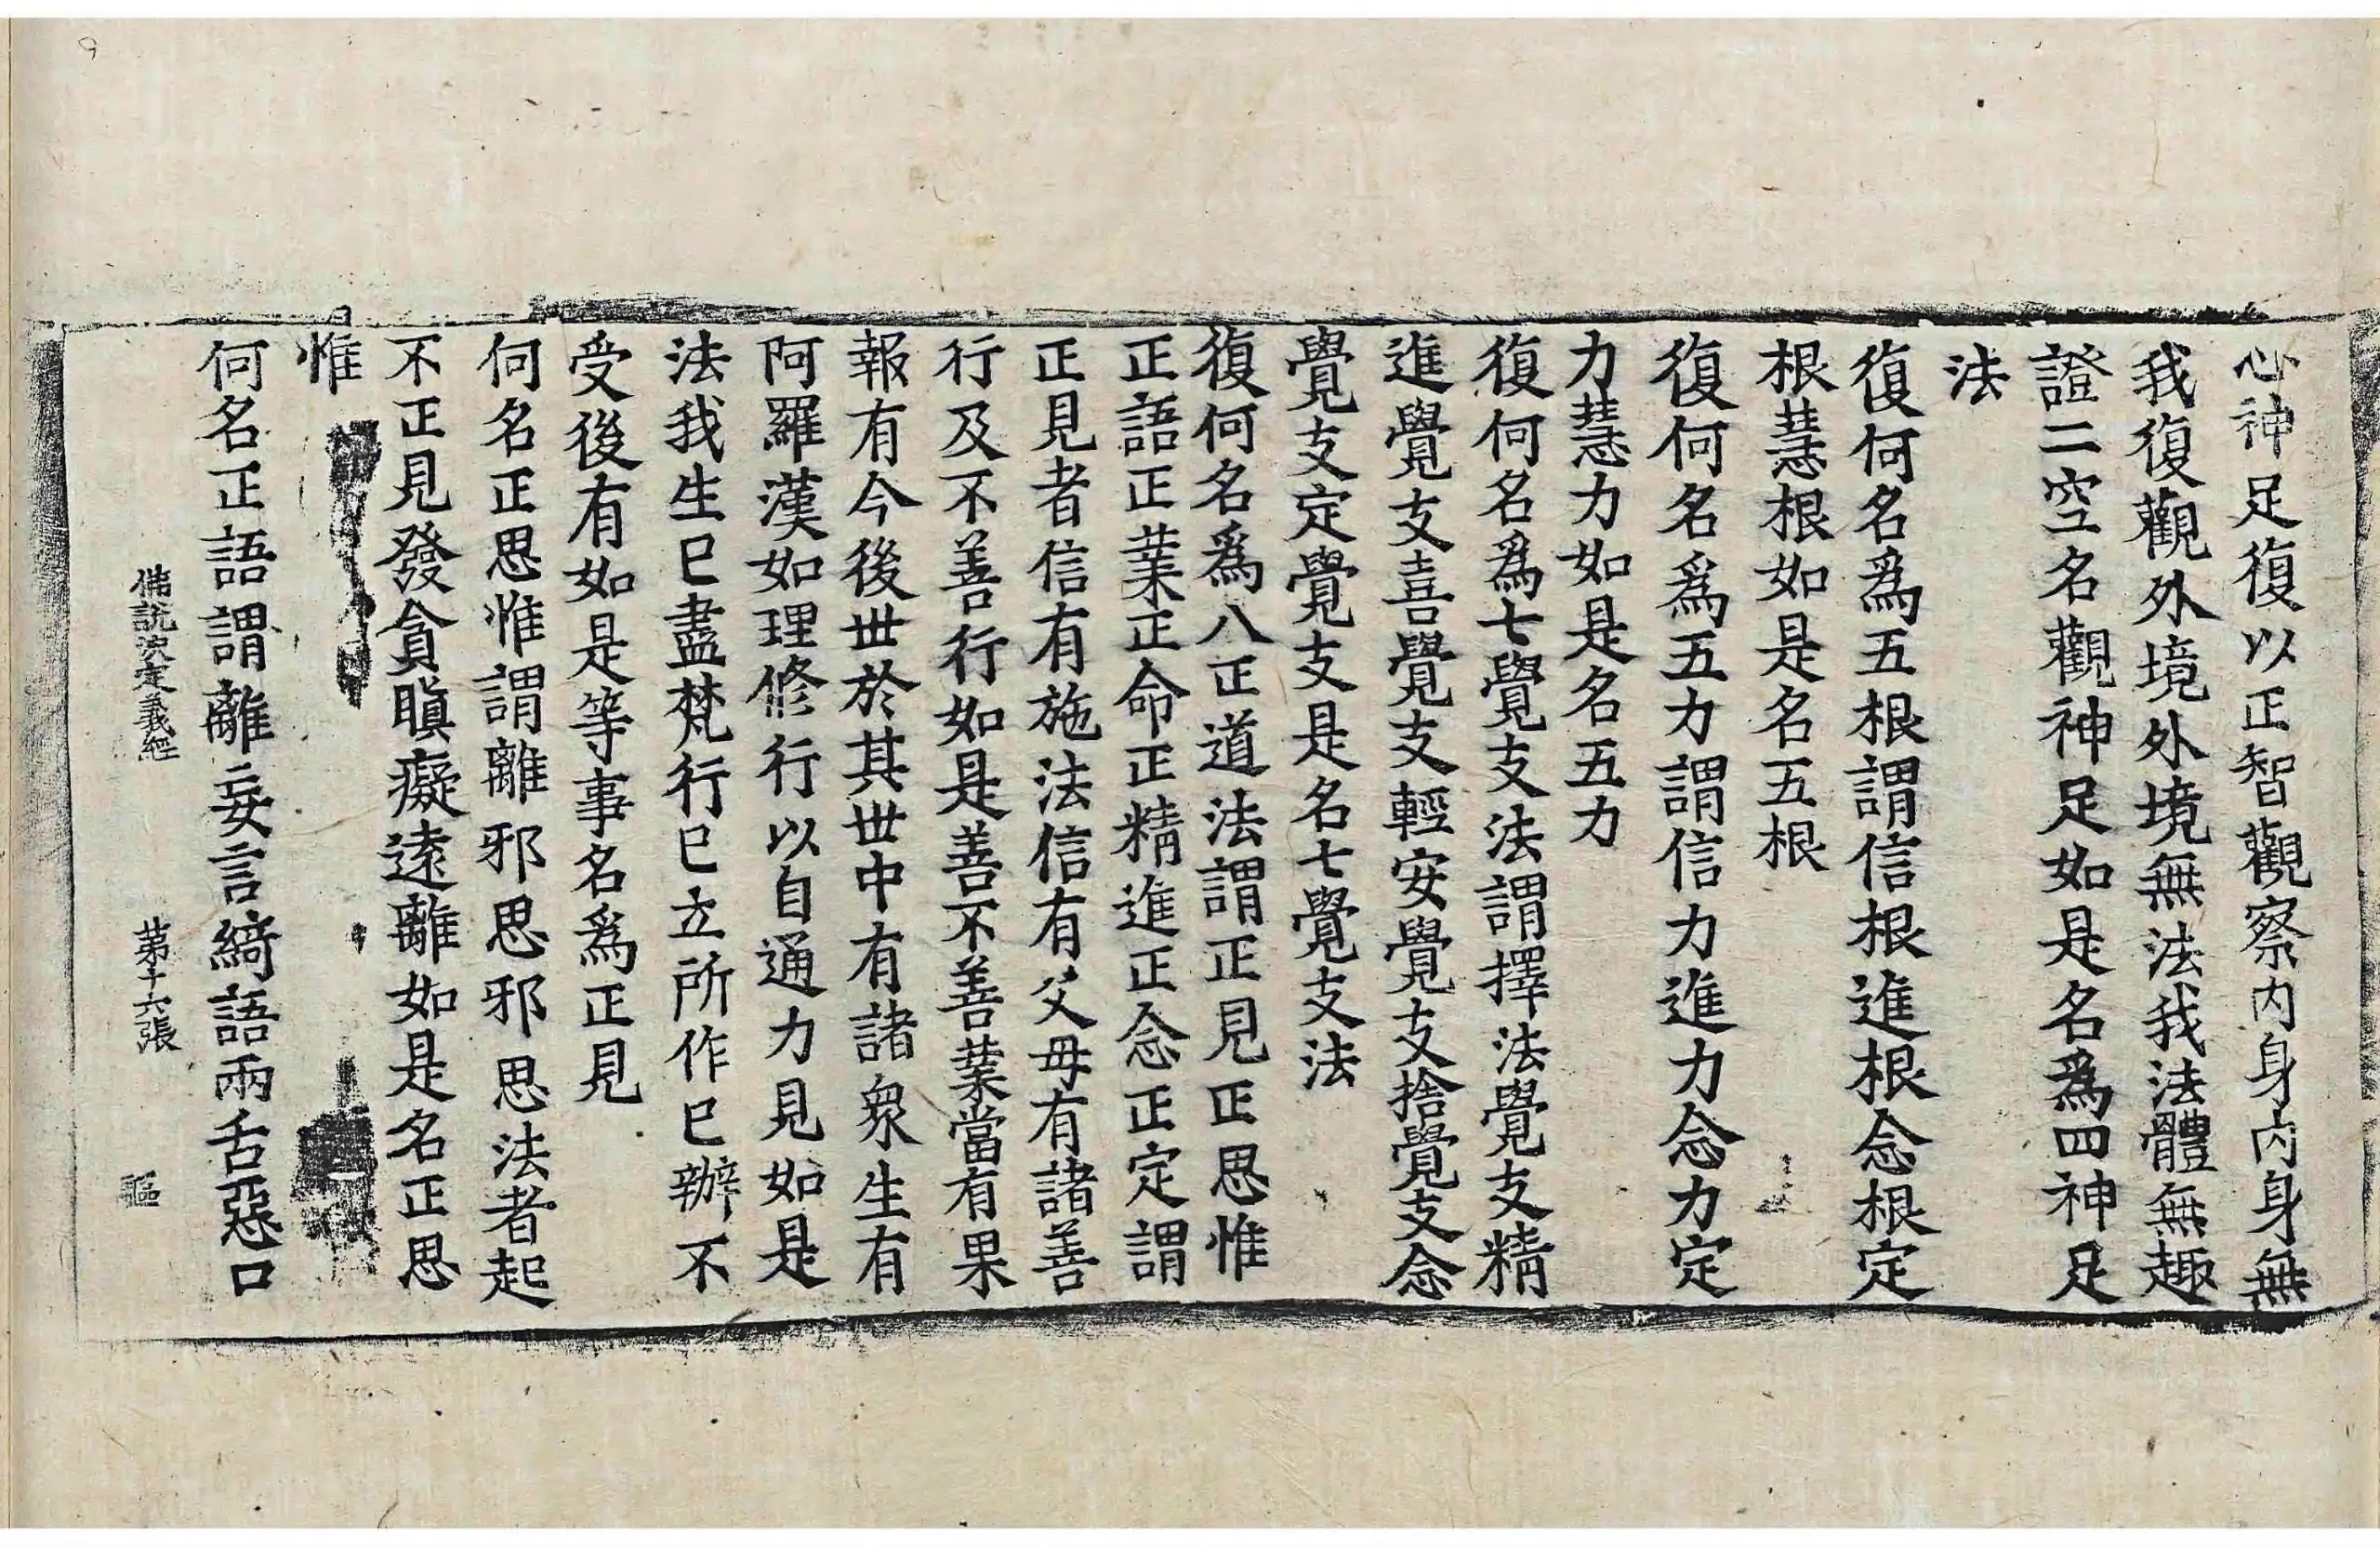 心神足復以正智觀察内身内身無
我復觀外境外境無法我法體無趣
證二空名觀神足如是名爲四神足
法
復何名爲五根謂信根進根念根定
根慧根如是名五根
復何名爲五力謂信力進力念力定
力慧力如是名五力
復何名爲七覺支法謂擇法覺支精
進覺支喜覺支輕安覺支捨覺支念
覺支定覺支是名七覺支法
復何名爲八正道法謂正見正思惟
正語正業正命正精進正念正定謂
正見者信有施法信有父母有諸善
行及不善行如是善不善業當有果
報有今後世於其世中有諸衆生有
阿羅漢如理修行以自通力見如是
法我生已盡梵行已立所作已辦不
受後有如是等事名爲正見
何名正思惟謂離邪思邪思法者起
不正見發貪瞋癡遠離如是名正思
惟
何名正語謂離妄言綺語兩舌惡口
佛說決定義經 第十六張
9